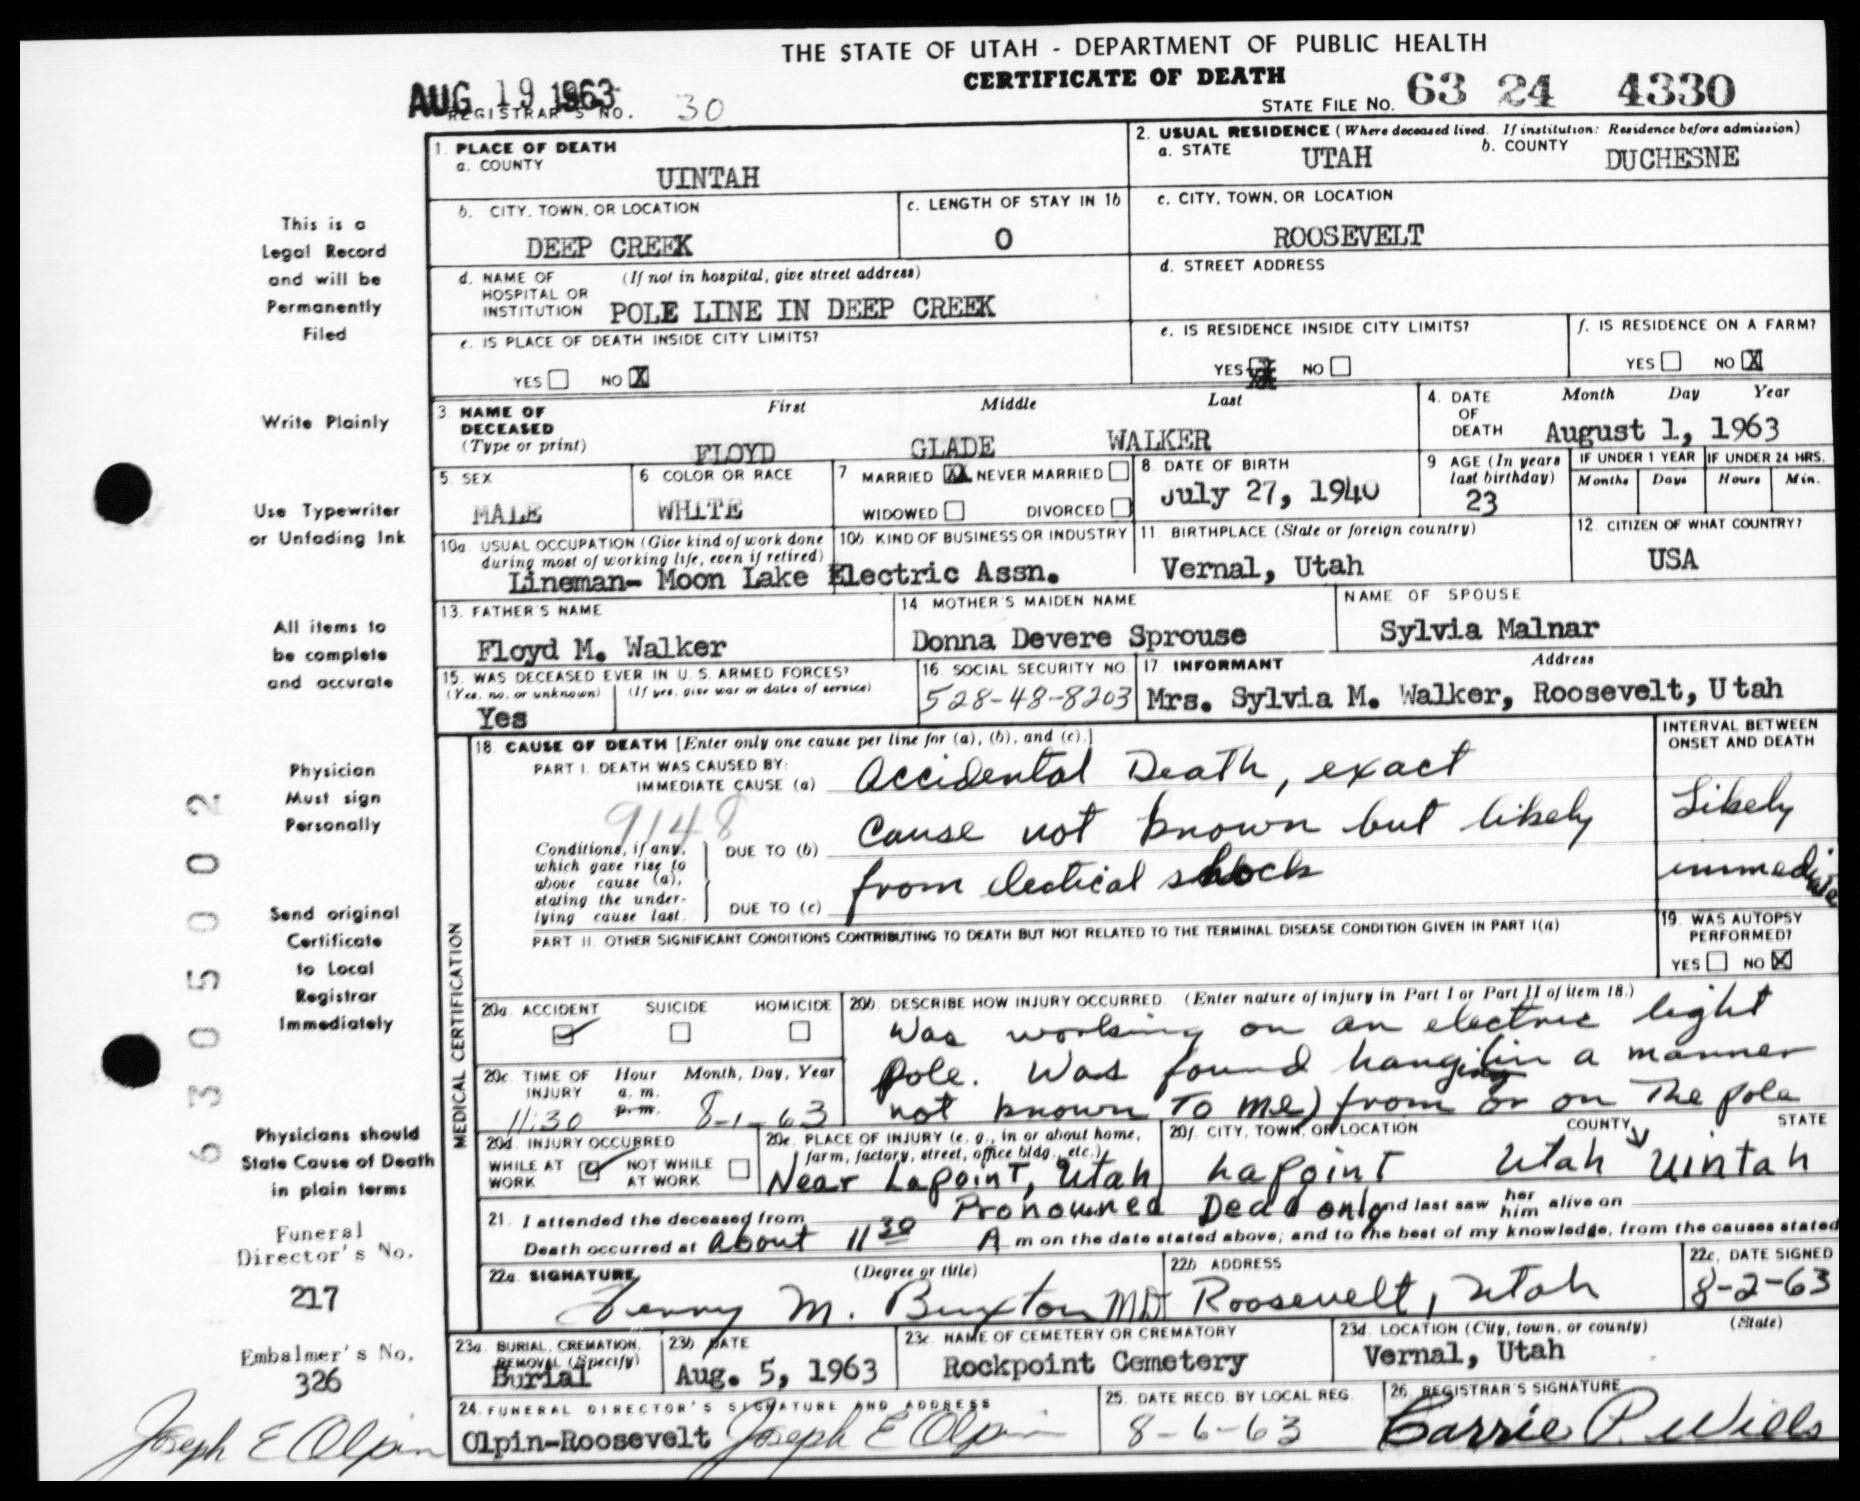 THE STATE OF UTAH - DEPARTMENT OF PUBLIC HEALTH
CERTIFICATE OF DEATH
AUG 19 1963
REGISTRAR'S NO. 30
STATE FILE NO. 63 24 4330
1. PLACE OF DEATH
a. COUNTY
UINTAH
2. USUAL RESIDENCE (Where deceased lived. If institution: Residence before admission)
a. STATE UTAH b. COUNTY DUCHESNE
b. CITY, TOWN, OR LOCATION
DEEP CREEK
c. LENGTH OF STAY IN 1b
0
c. CITY, TOWN, OR LOCATION
ROOSEVELT
d. NAME OF HOSPITAL OR INSTITUTION (If not in hospital, give street address)
POLE LINE IN DEEP CREEK
d. STREET ADDRESS
e. IS PLACE OF DEATH INSIDE CITY LIMITS?
YES NO X
e. IS RESIDENCE INSIDE CITY LIMITS?
YES X NO
f. IS RESIDENCE ON A FARM?
YES NO X
3. NAME OF DECEASED (Type or print)
First Middle Last
FLOYD GLADE WALKER
4. DATE OF DEATH Month Day Year
August 1, 1963
5. SEX
MALE
6 COLOR OR RACE
WHITE
7 MARRIED X NEVER MARRIED
WIDOWED DIVORCED
8. DATE OF BIRTH
July 27, 1940
9 AGE (In years last birthday)
23
IF UNDER 1 YEAR IF UNDER 24 HRS.
Months Days Hours Min.
10a. USUAL OCCUPATION (Give kind of work done during most of working life, even if retired)
10b. KIND OF BUSINESS OR INDUSTRY
Lineman- Moon Lake Electric Assn.
11. BIRTHPLACE (State or foreign country)
Vernal, Utah
12. CITIZEN OF WHAT COUNTRY?
USA
13. FATHER'S NAME
Floyd M. Walker
14. MOTHER'S MAIDEN NAME
Donna Devere Sprouse
NAME OF SPOUSE
Sylvia Malnar
15. WAS DECEASED EVER IN U. S. ARMED FORCES?
(Yes, no, or unknown) (If yes, give war or dates of service)
Yes
16. SOCIAL SECURITY NO.
528-48-8203
17 INFORMANT Address
Mrs. Sylvia M. Walker, Roosevelt, Utah
MEDICAL CERTIFICATION
18. CAUSE OF DEATH [Enter only one cause per line for (a), (b), and (c).]
PART I. DEATH WAS CAUSED BY:
IMMEDIATE CAUSE (a) Accidental Death, exact
9148
Conditions, if any, which gave rise to above cause (a), stating the underlying cause last.
DUE TO (b) Cause not known but likely
DUE TO (c) from electical shock
INTERVAL BETWEEN ONSET AND DEATH
Likely
immediate
PART II. OTHER SIGNIFICANT CONDITIONS CONTRIBUTING TO DEATH BUT NOT RELATED TO THE TERMINAL DISEASE CONDITION GIVEN IN PART I(a)
19. WAS AUTOPSY PERFORMED?
YES NO X
20a. ACCIDENT SUICIDE HOMICIDE
20b. DESCRIBE HOW INJURY OCCURRED. (Enter nature of injury in Part I or Part II of item 18.)
Was working on an electric light
pole. Was found hanging (in a manner
not known to me) from or on the pole
20c. TIME OF INJURY Hour a. m. p. m. Month, Day, Year
11:30 8-1-63
20d. INJURY OCCURRED
WHILE AT WORK NOT WHILE AT WORK
20e. PLACE OF INJURY (e. g., in or about home, farm, factory, street, office bldg., etc.)
Near Lapoint, Utah
20f. CITY, TOWN, OR LOCATION COUNTY STATE
Lapoint Utah Uintah
21. I attended the deceased from Pronounced Dead only and last saw her him alive on
Death occurred at About 11 30 A m on the date stated above; and to the best of my knowledge, from the causes stated
22a. SIGNATURE (Degree or title)
M. Buxton MD
22b. ADDRESS
Roosevelt, Utah
22c, DATE SIGNED
8-2-63
23a. BURIAL, CREMATION, REMOVAL (Specify)
Burial
23b. DATE
Aug. 5, 1963
23c. NAME OF CEMETERY OR CREMATORY
Rockpoint Cemetery
23d. LOCATION (City, town, or county) (State)
Vernal, Utah
24. FUNERAL DIRECTOR'S SIGNATURE AND ADDRESS
Olpin-Roosevelt Joseph E Olpin
25. DATE RECD. BY LOCAL REG.
8-6-63
26. REGISTRAR'S SIGNATURE
Carrie P. Wills
This is a
Legal Record
and will be
Permanently
Filed
Write Plainly
Use Typewriter
or Unfading Ink
All items to
be complete
and accurate
Physician
Must sign
Personally
Send original
Certificate
to Local
Registrar
Immediately
Physicians should
State Cause of Death
in plain terms
Funeral
Director's No.
217
Embalmer's No.
326
Joseph E Olpin
6305002